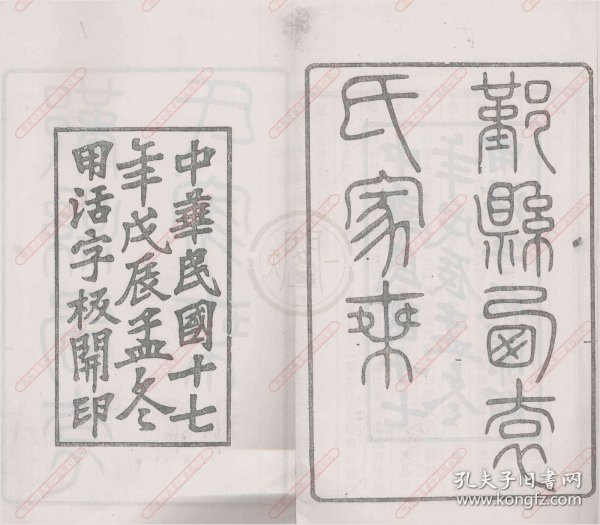 鄞縣西袁
氏家乘
中華民國十七
年戊辰孟冬
用活字板開印
孔夫子旧书网
www.kongfz.com